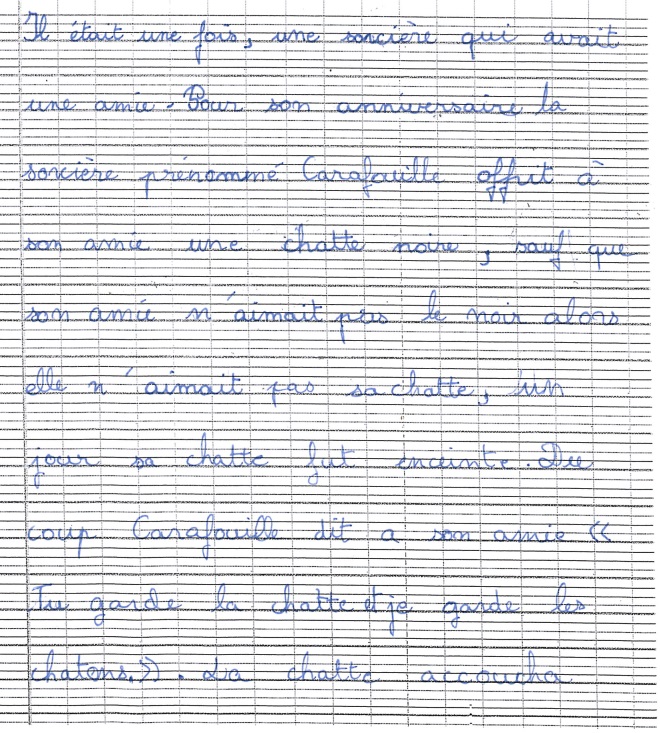 Il était une fois, une sorcière qui avait
une amie. Pour son anniversaire la
sorcière prénommé Carafouille offrit à
son amie une chatte noire, sauf que
son amie n'aimait pas le noir alors
elle n'aimait pas sa chatte, un
jour sa chatte fut enceinte. Du
coup Carafouille dit a son amie «
Tu garde la chatte et je garde les
chatons.». La chatte accoucha